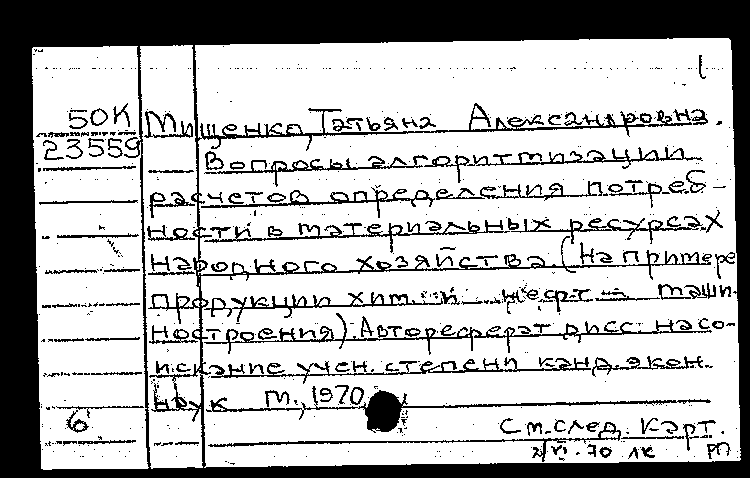 1
50К Мищенко, Татьяна Александровна.
23559 Вопросы алгоритмизации
расчетов определения потреб-
ности в материальных ресурсах
народного хозяйства. (На примере
продукции хим. и нефт. машин-
ностроения). Автореферат дисс. на со-
искание учен. степени канд. экон.
наук М., 1970
6
См. след. карт.
2/VI-70 ЛК РП